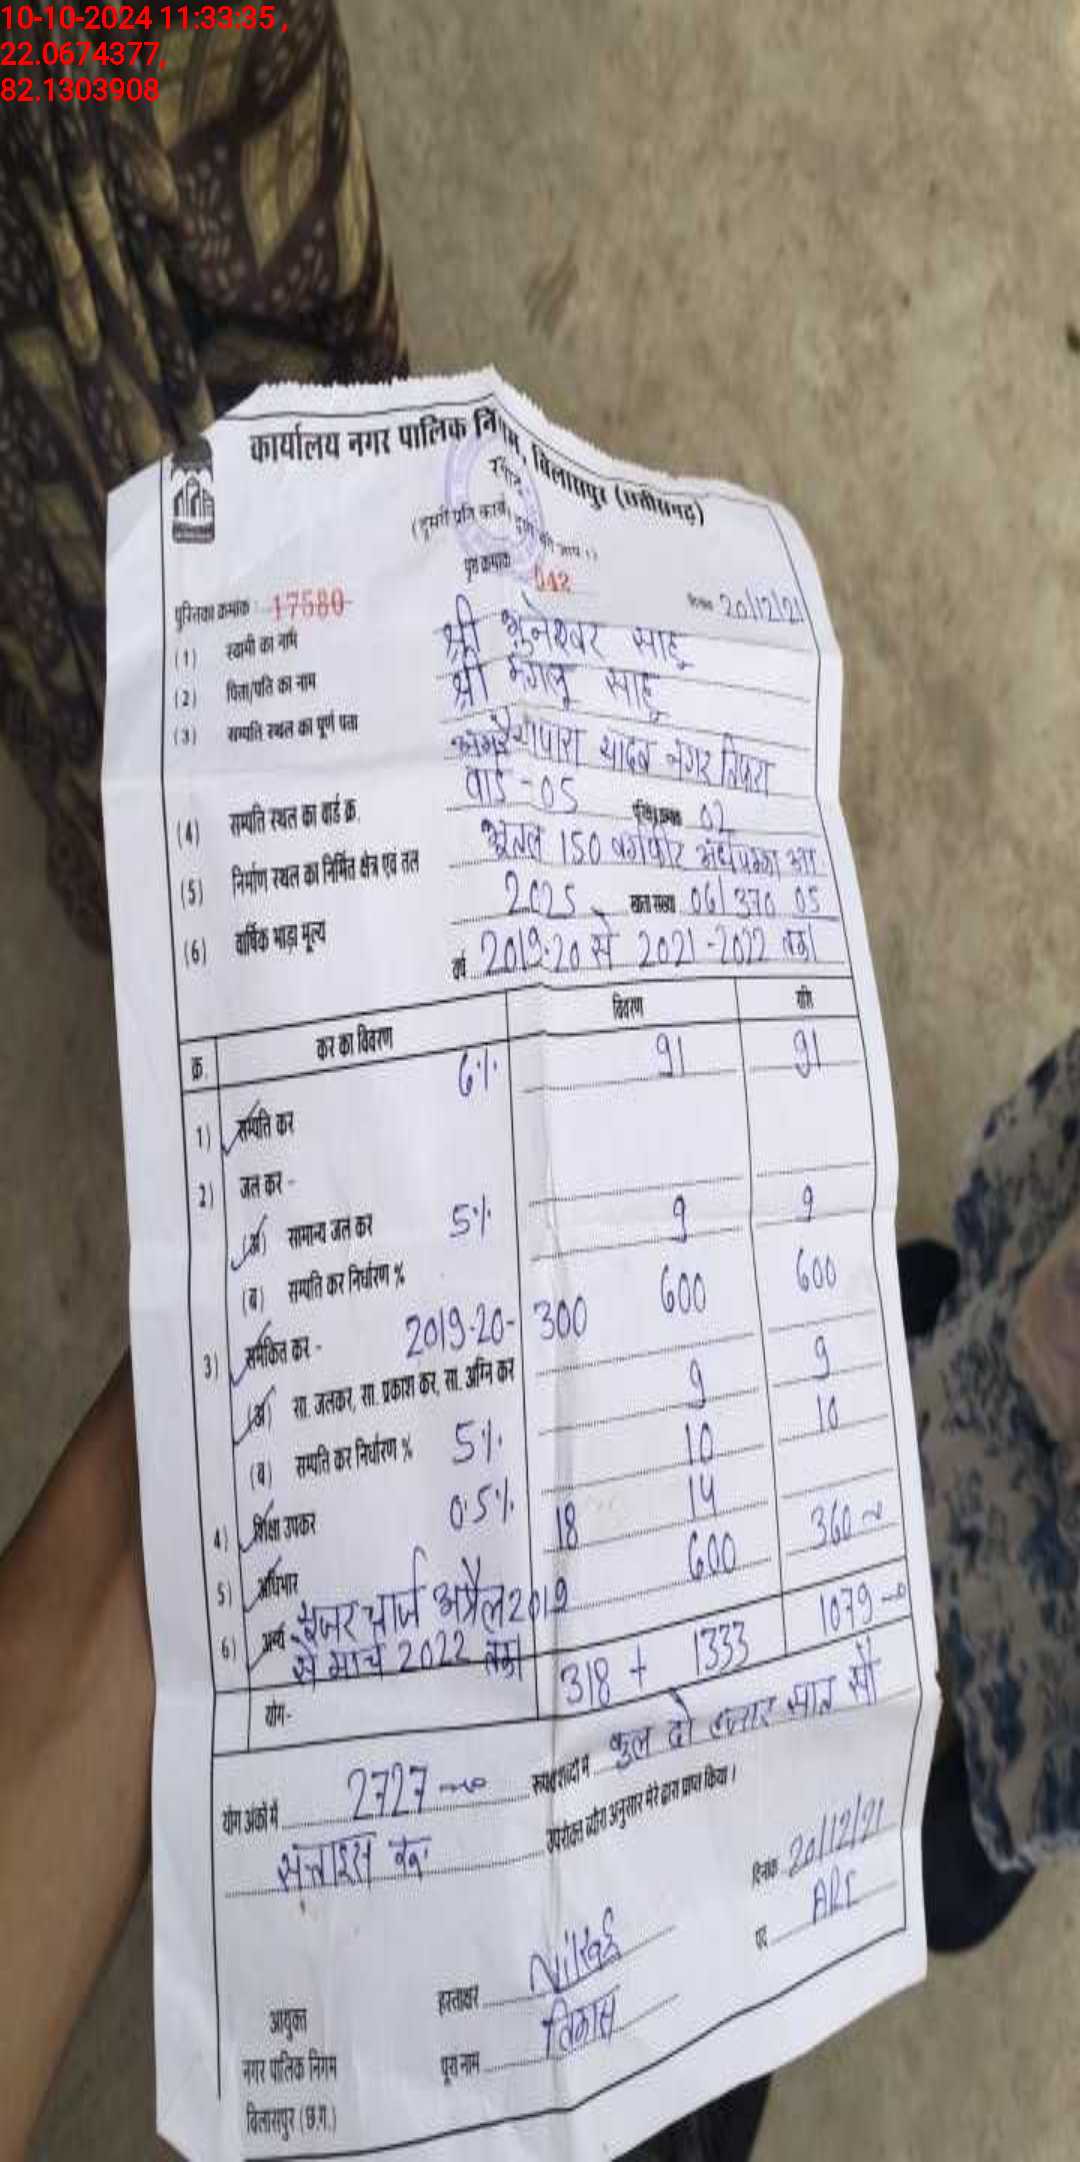 10-10-2024 11:33:35 ,
22.0674377,
82.1303908
कार्यालय नगर पालिक निगम, बिलासपुर (छत्तीसगढ़)
रसीद
(दूसरी प्रति कार्बन द्वारा की जाय।)
पुस्तिका क्रमांक : 17580 पृष्ठ क्रमांक 042 दिनांक 20/12/21
(1) स्वामी का नाम श्री भुनेश्वर साहू
(2) पिता/पति का नाम श्री मंगलू साहू
(3) सम्पति स्थल का पूर्ण पता यादव नगर तिफरा
(4) सम्पति स्थल का वार्ड क्र. वार्ड - 05 02
(5) निर्माण स्थल का निर्मित क्षेत्र एवं तल भूतल 150 वर्गफीट
(6) वार्षिक भाड़ा मूल्य 2025 खाता संख्या 06/370 05
वर्ष 2019-20 से 2021-2022 तक
क्र. कर का विवरण विवरण राशि
1) सम्पति कर 6% 91 91
2) जल कर -
(अ) सामान्य जल कर
(ब) सम्पति कर निर्धारण % 5% 9 9
3) समेकित कर - 2019-20- 300 600 600
(अ) सा. जलकर, सा. प्रकाश कर, सा. अग्नि कर
(ब) सम्पति कर निर्धारण % 5% 9 9
4) शिक्षा उपकर 0.5% 10 10
5) अधिभार 18 14
6) अन्य यूजर चार्ज अप्रैल 2019 600 360
से मार्च 2022 तक
योग- 318 + 1333 1079
योग अंकों में 2727 रूपये शब्दों में कुल दो हजार सात सौ
सत्ताइस उपरोक्त ब्यौरा अनुसार मेरे द्वारा प्राप्त किया।
दिनांक 20/12/21
पद ARI
आयुक्त हस्ताक्षर
नगर पालिक निगम पूरा नाम विकास
बिलासपुर (छ.ग.)